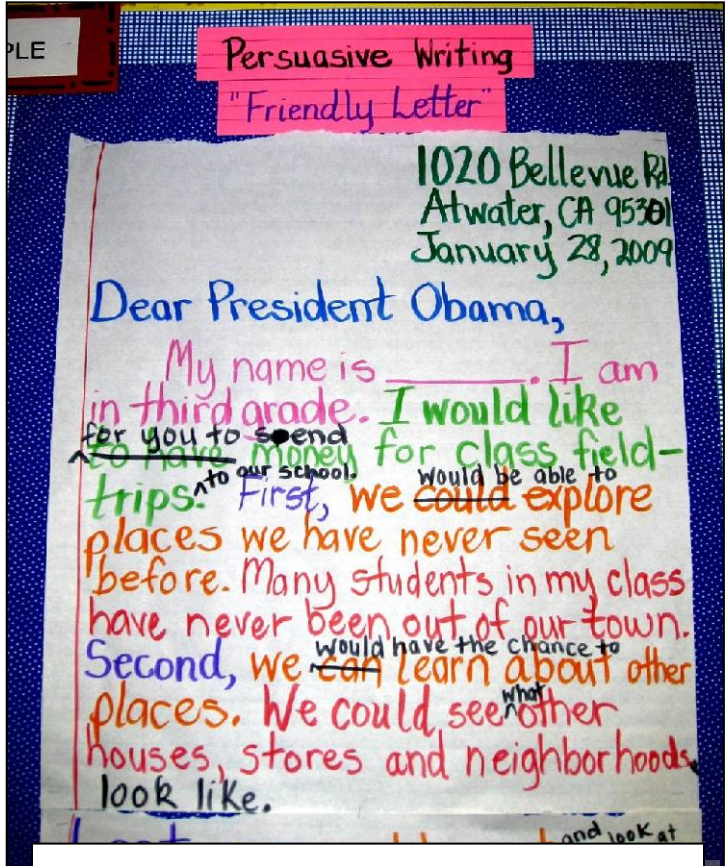 PLE
Persuasive Writing
"Friendly Letter"
1020 Bellevue Rd.
Atwater, CA 95301
January 28, 2009
Dear President Obama,
My name is ________. I am
in third grade. I would like
for you to spend
to have money for class field-
trips. to our school. First, we could would be able to explore
places we have never seen
before. Many students in my class
have never been out of our town.
Second, we can would have the chance to learn about other
places. We could see what other
houses, stores and neighborhoods
look like.
and look at